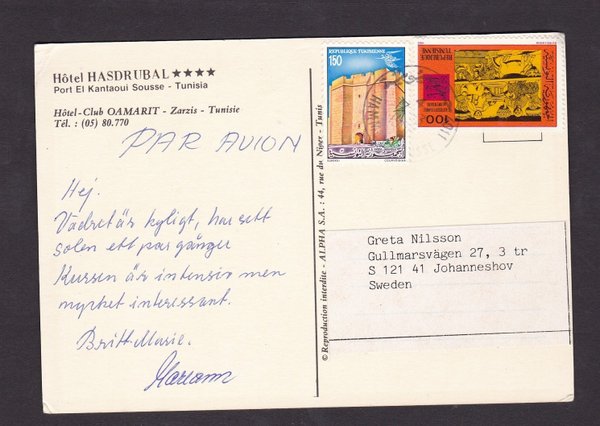 Hôtel HASDRUBAL ★★★★
Port El Kantaoui Sousse - Tunisia
Hôtel-Club OAMARIT - Zarzis - Tunisie
Tél. : (05) 80.770
PAR AVION
Hej.
Vädret är kyligt, har sett
solen ett par gånger
Kursen är intensiv men
mycket interessant.
Britt Marie.
Mariann
© Reproduction interdite - ALPHA S.A. : 44, rue du Niger - Tunis
REPUBLIQUE TUNISIENNE
150
REPUBLIQUE
TUNISIENNE
100
Greta Nilsson
Gullmarsvägen 27, 3 tr
S 121 41 Johanneshov
Sweden